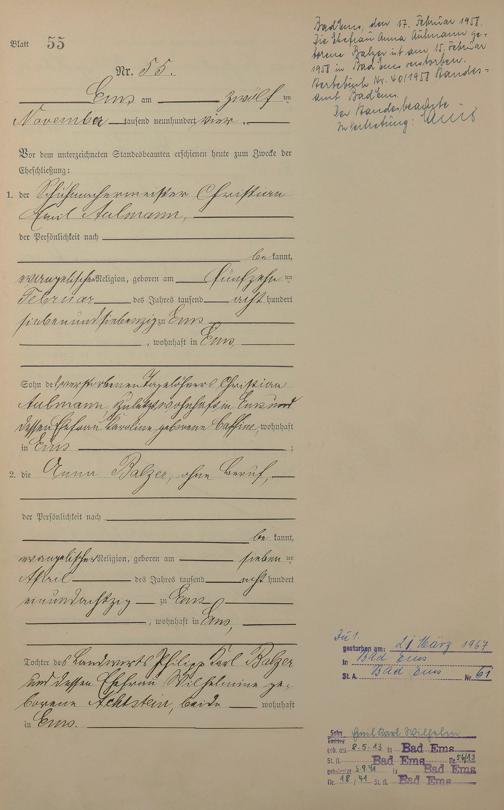 Blatt 55
Nr. 55.
Ems am zwölf ten
November tausend neunhundert vier.
Vor dem unterzeichneten Standesbeamten erschienen heute zum Zwecke der
Eheschließung:
1. der Schuhmachermeister Christian
Emil Aulmann,
der Persönlichkeit nach
be kannt,
evangelischer Religion, geboren am fünfzehn ten
Februar des Jahres tausend acht hundert
siebenundsiebenzig zu Ems
, wohnhaft in Ems
Sohn des verstorbenen Tagelöhners Christian
Aulmann, zuletzt wohnhaft in Ems und
dessen Ehefrau Karoline geborene wohnhaft
in Ems ;
2. die Anna Balzer, ohne Beruf,
der Persönlichkeit nach
be kannt,
evangelischer Religion, geboren am sieben ten
April des Jahres tausend acht hundert
einundachtzig zu Ems
, wohnhaft in Ems,
Tochter des Landwirts Philipp Karl Balzer
und dessen Ehefrau Wilhelmine ge-
borene beide wohnhaft
in Ems.
Bad Ems, den 17. Februar 1958.
Die Ehefrau Anna Aulmann ge-
borene Balzer ist am 15. Februar
1958 in Bad Ems verstorben.
Sterbebuch Nr. 40/1958 Standes-
amt Bad Ems.
Der Standesbeamte
In Vertretung:
Zu 1.
gestorben am: 21. März 1967
in Bad Ems
St. A. Bad Ems Nr. 61
Sohn Emil Karl Wilhelm
geb. am 8.5.13 in Bad Ems
St. A. Bad Ems Nr. 56/13
in Bad Ems
Nr. 18/41 St. A. Bad Ems